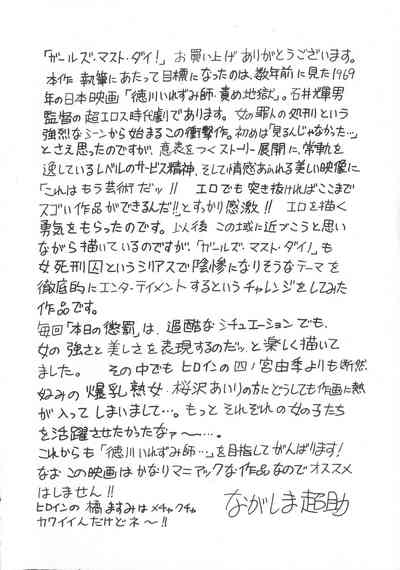 「ガールズ・マスト・ダイ!」お買い上げありがとうございます。
本作執筆にあたって目標になったのは、数年前に見た1969
年の日本映画「徳川いれずみ師・責め地獄」。石井輝男
監督の超エロス時代劇であります。女の罪人の処刑という
強烈なシーンから始まるこの衝撃作。初めは「見るんじゃなかった…」
とさえ思ったのですが、意表をつくストーリー展開に、常軌を
逸しているレベルのサービス精神、そして情感あふれる美しい映像に
「これはもう芸術だッ!! エロでも突き抜ければここまで
スゴい作品ができるんだ!!」とすっかり感激! エロを描く
勇気をもらったのです。以後この域に近づこうと思い
ながら描いているのですが、「ガールズ・マスト・ダイ!」も
女死刑囚というシリアスで陰惨になりそうなテーマを
徹底的にエンターテイメントするというチャレンジをしてみた
作品です。
毎回「本日の懲罰」は、過酷なシチュエーションでも、
女の強さと美しさを表現するのだッ、と楽しく描いて
ました。 その中でもヒロインの四ノ宮由季よりも断然
好みの爆乳熟女・桜沢あいりの方にどうしても作画に熱
が入ってしまいまして…。もっとそれぞれの女の子たち
を活躍させたかったなァ〜…。
これからも「徳川いれずみ師…」を目指してがんばります!
なおこの映画はかなりマニアックな作品なのでオススメ
はしません!!
ヒロインの橘ますみはメチャクチャ
カワイイんだけどネ〜!!
ながしま超助